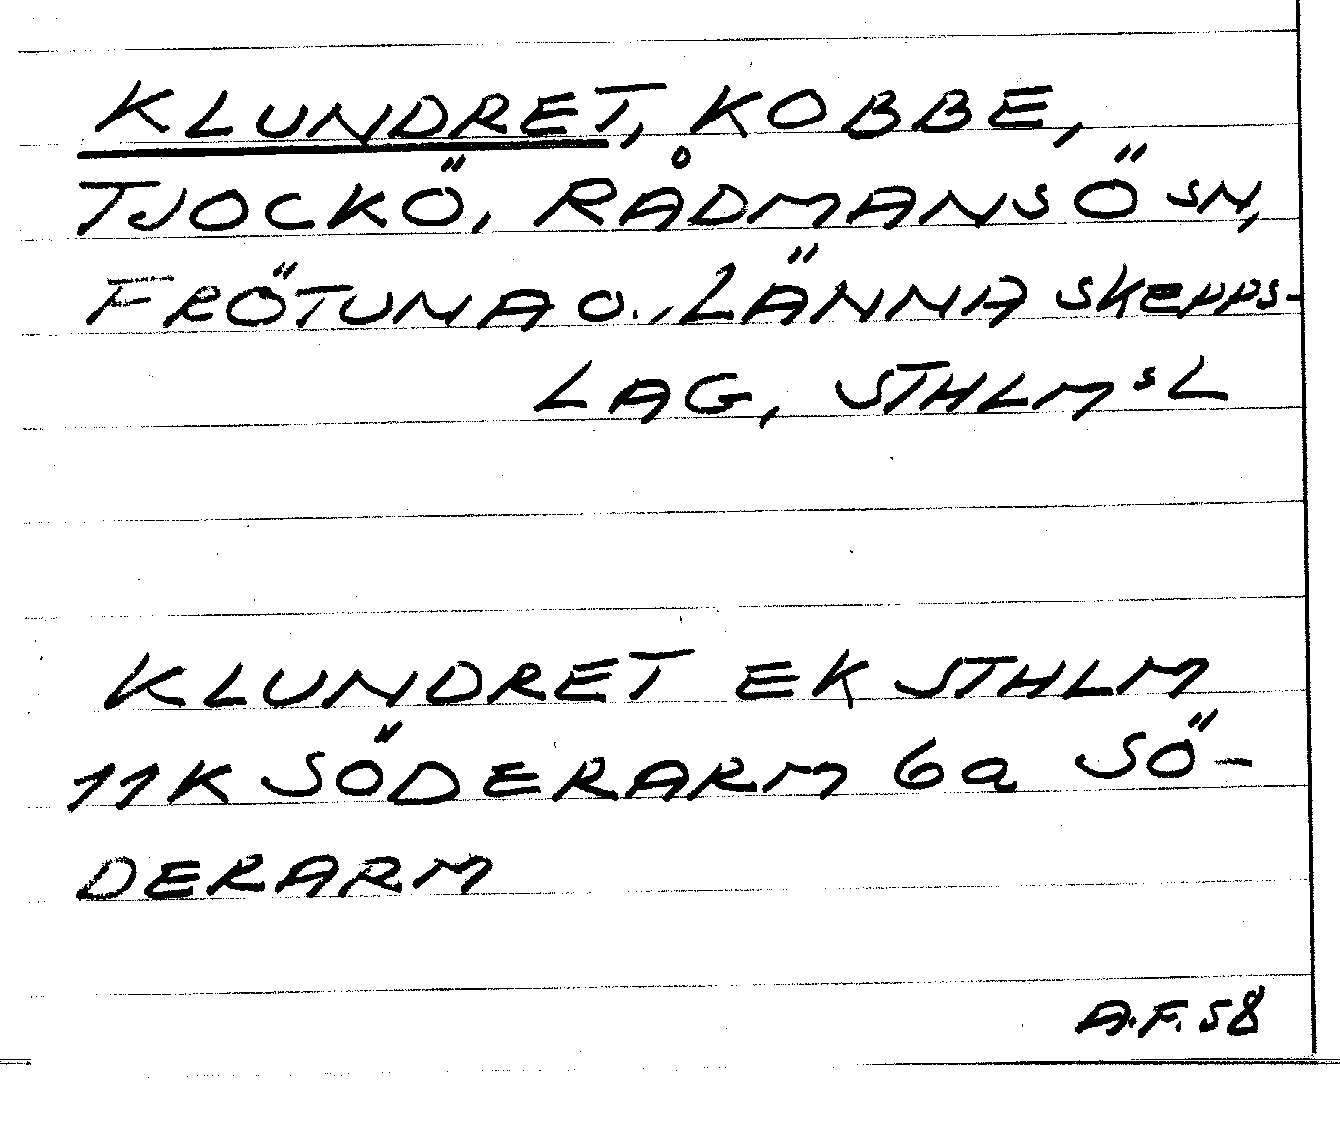 KLUNDRET, KOBBE,
TJOCKÖ, RÅDMANSÖ SN,
FRÖTUNA O. LÄNNA SKEPPS-
LAG, STHLMsL
KLUNDRET EK STHLM
11K SÖDERARM 6a SÖ-
DERARM
A.F. 58